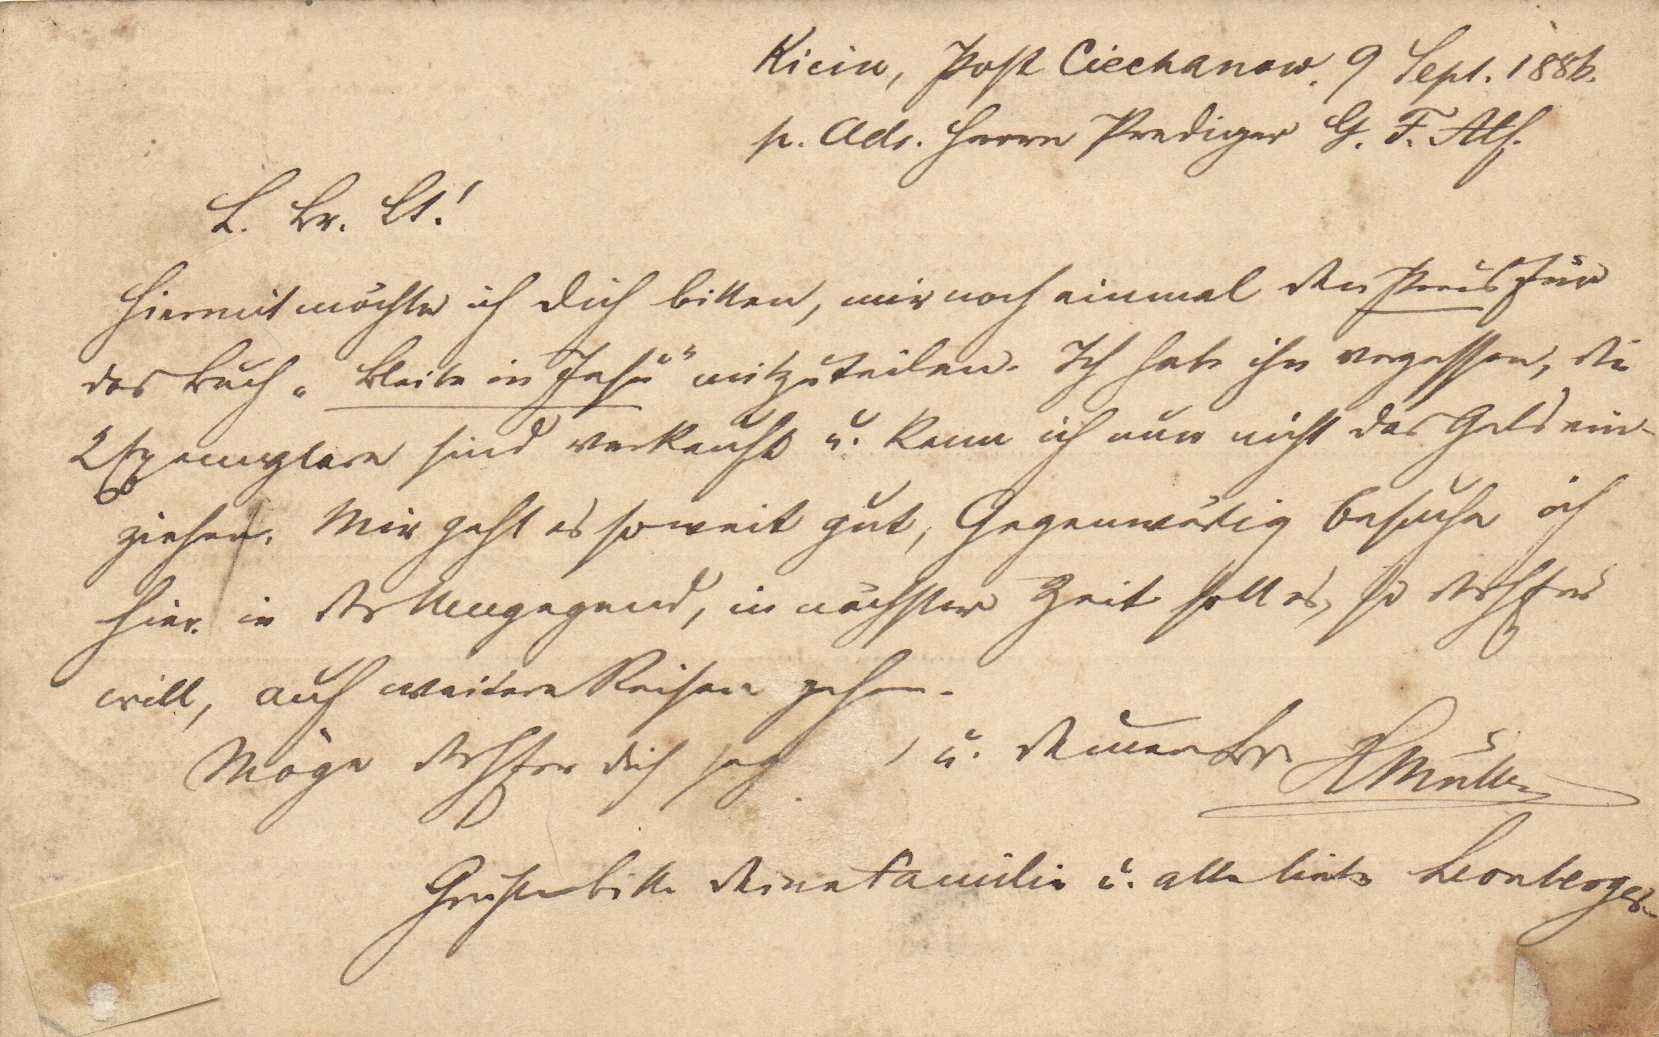 Kicin, Post Ciechanow, 9 Sept. 1886.
p. Adr. Herrn Prediger G. F. Alf.
L. Br. Lt.!
Hiermit möchte ich Dich bitten, mir noch einmal den Preis für
das Buch „Bleibe in Jesu“ mitzuteilen. Ich habe ihn vergessen, die
Exemplare sind verkauft u. kann ich nun nicht das Geld ein-
ziehen. Mir geht es soweit gut, Gegenwärtig besuche ich
hier in der Umgegend, in nächster Zeit soll es, so der Herr
will, auf weitere Reisen gehen.
Möge der Herr dich seg u. deinen Br. HMüller
Grüße bitte deine Familie u. alle liebe Leonberger.